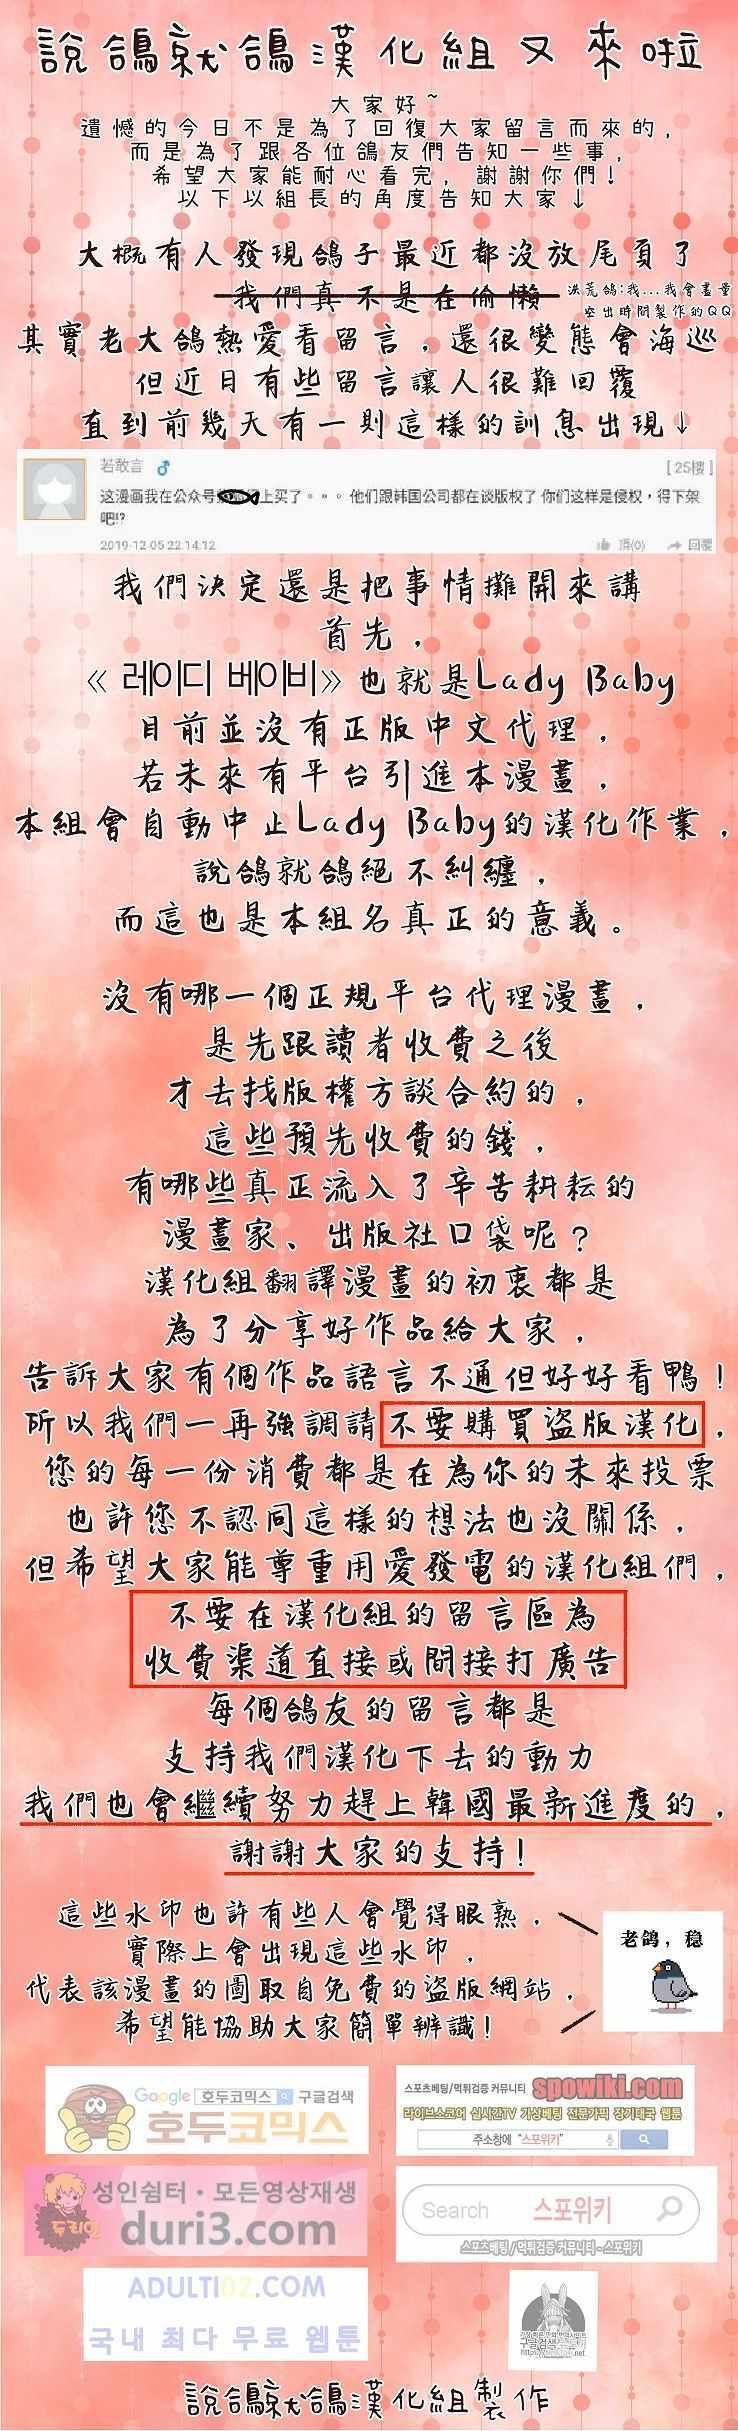 說鴿就鴿漢化組又來啦
大家好~
遺憾的今日不是為了回復大家留言而來的,
而是為了跟各位鴿友們告知一些事,
希望大家能耐心看完, 謝謝你們!
以下以組長的角度告知大家↓
大概有人發現鴿子最近都沒放尾頁了
我們真不是在偷懶
洪荒鴿:我...我會盡量
空出時間製作的QQ
其實老大鴿熱愛看留言,還很變態會海巡
但近日有些留言讓人很難回覆
直到前幾天有一則這樣的訊息出現↓
若敢言 ♂ [25樓]
这漫画我在公众号上买了。。。他们跟韩国公司都在谈版权了 你们这样是侵权,得下架
吧!?
2019-12-05 22:14:12 頂(0) 回覆
我們決定還是把事情攤開來講
首先,
《 레이디 베이비》也就是Lady Baby
目前並沒有正版中文代理,
若未來有平台引進本漫畫,
本組會自動中止Lady Baby的漢化作業,
說鴿就鴿絕不糾纏,
而這也是本組名真正的意義。
沒有哪一個正規平台代理漫畫,
是先跟讀者收費之後
才去找版權方談合約的,
這些預先收費的錢,
有哪些真正流入了辛苦耕耘的
漫畫家、出版社口袋呢?
漢化組翻譯漫畫的初衷都是
為了分享好作品給大家,
告訴大家有個作品語言不通但好好看鴨!
所以我們一再強調請不要購買盜版漢化,
您的每一份消費都是在為你的未來投票
也許您不認同這樣的想法也沒關係,
但希望大家能尊重用愛發電的漢化組們,
不要在漢化組的留言區為
收費渠道直接或間接打廣告
每個鴿友的留言都是
支持我們漢化下去的動力
我們也會繼續努力趕上韓國最新進度的,
謝謝大家的支持!
這些水印也許有些人會覺得眼熟,
實際上會出現這些水印,
代表該漫畫的圖取自免費的盜版網站,
希望能協助大家簡單辨識!
老鸽,稳
Google 호두코믹스 구글검색
호두코믹스
스포츠베팅/먹튀검증 커뮤니티 spowiki.com
라이브스코어 실시간TV 가상베팅 전문가픽 장기대국 웹툰
주소창에 "스포위키"
두리안
성인쉼터・모든영상재생
duri3.com
Search 스포위키
스포츠베팅/먹튀검증 커뮤니티 - 스포위키
ADULTI02.COM
국내 최다 무료 웹툰
說鴿就鴿漢化組製作